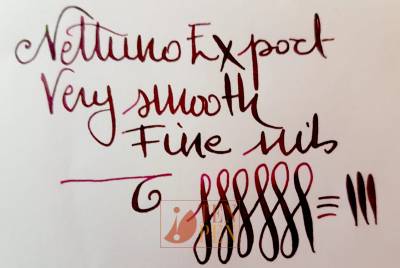 Nettuno Export
Very smooth
Fine nib